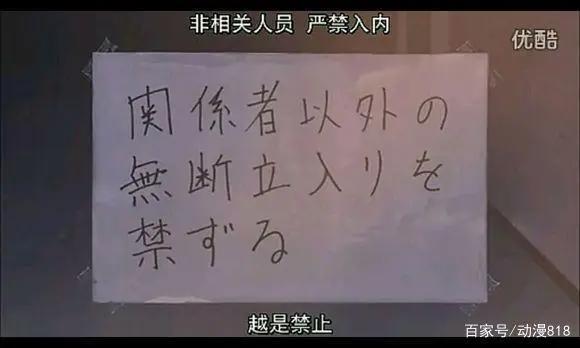 非相关人员 严禁入内
优酷
関係者以外の
無断立入りを
禁ずる
越是禁止
百家号/动漫818